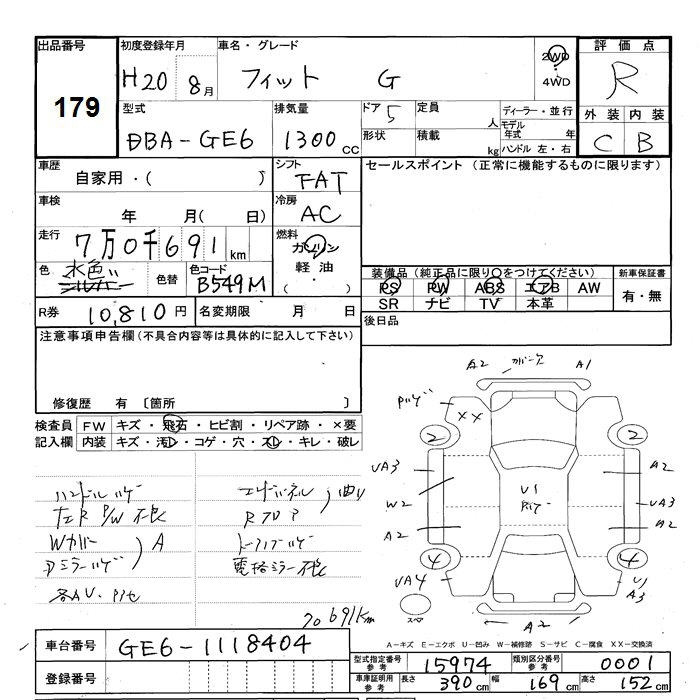 出品番号 初度登録年月 車名・グレード 2WD 評価点
179 H20 8月 フィット G 4WD R
型式 排気量 ドア 5 定員 人 ディーラー・並行 外装 内装
DBA-GE6 1300cc 形状 積載 kg モデル年式 年 ハンドル 左・右 C B
車歴 自家用・( ) シフト FAT セールスポイント (正常に機能するものに限ります)
車検 年 月( 日) 冷房 AC
走行 7万0千691km 燃料 ガソリン
軽油・( )
色 水色 シルバー 色替 色コード B549M 装備品(純正品に限り○をつけてください) 新車保証書
PS PW ABS エアB AW 有・無
SR ナビ TV 本革
R券 10,810円 名変期限 月 日 後日品
注意事項申告欄(不具合内容等は具体的に記入して下さい)
修復歴 有 〔箇所 〕
検査員 FW キズ・飛石・ヒビ割・リペア跡・×要
記入欄 内装 キズ・汚レ・コゲ・穴・スレ・キレ・破レ
A2 A1
XX
2 2
UA3 A2
W2 U1 UA3
A2 A2
4 4
UA4 U1
A3
A2
W カバー A
Dミラーハゲ
70691km
A-キズ E-エクボ U-凹み W-補修跡 S-サビ C-腐食 XX-交換済
車台番号 GE6-1118404
登録番号
型式指定番号 参考 15974 類別区分番号 参考 0001
車庫証明用 参考 長さ 390cm 幅 169cm 高さ 152cm